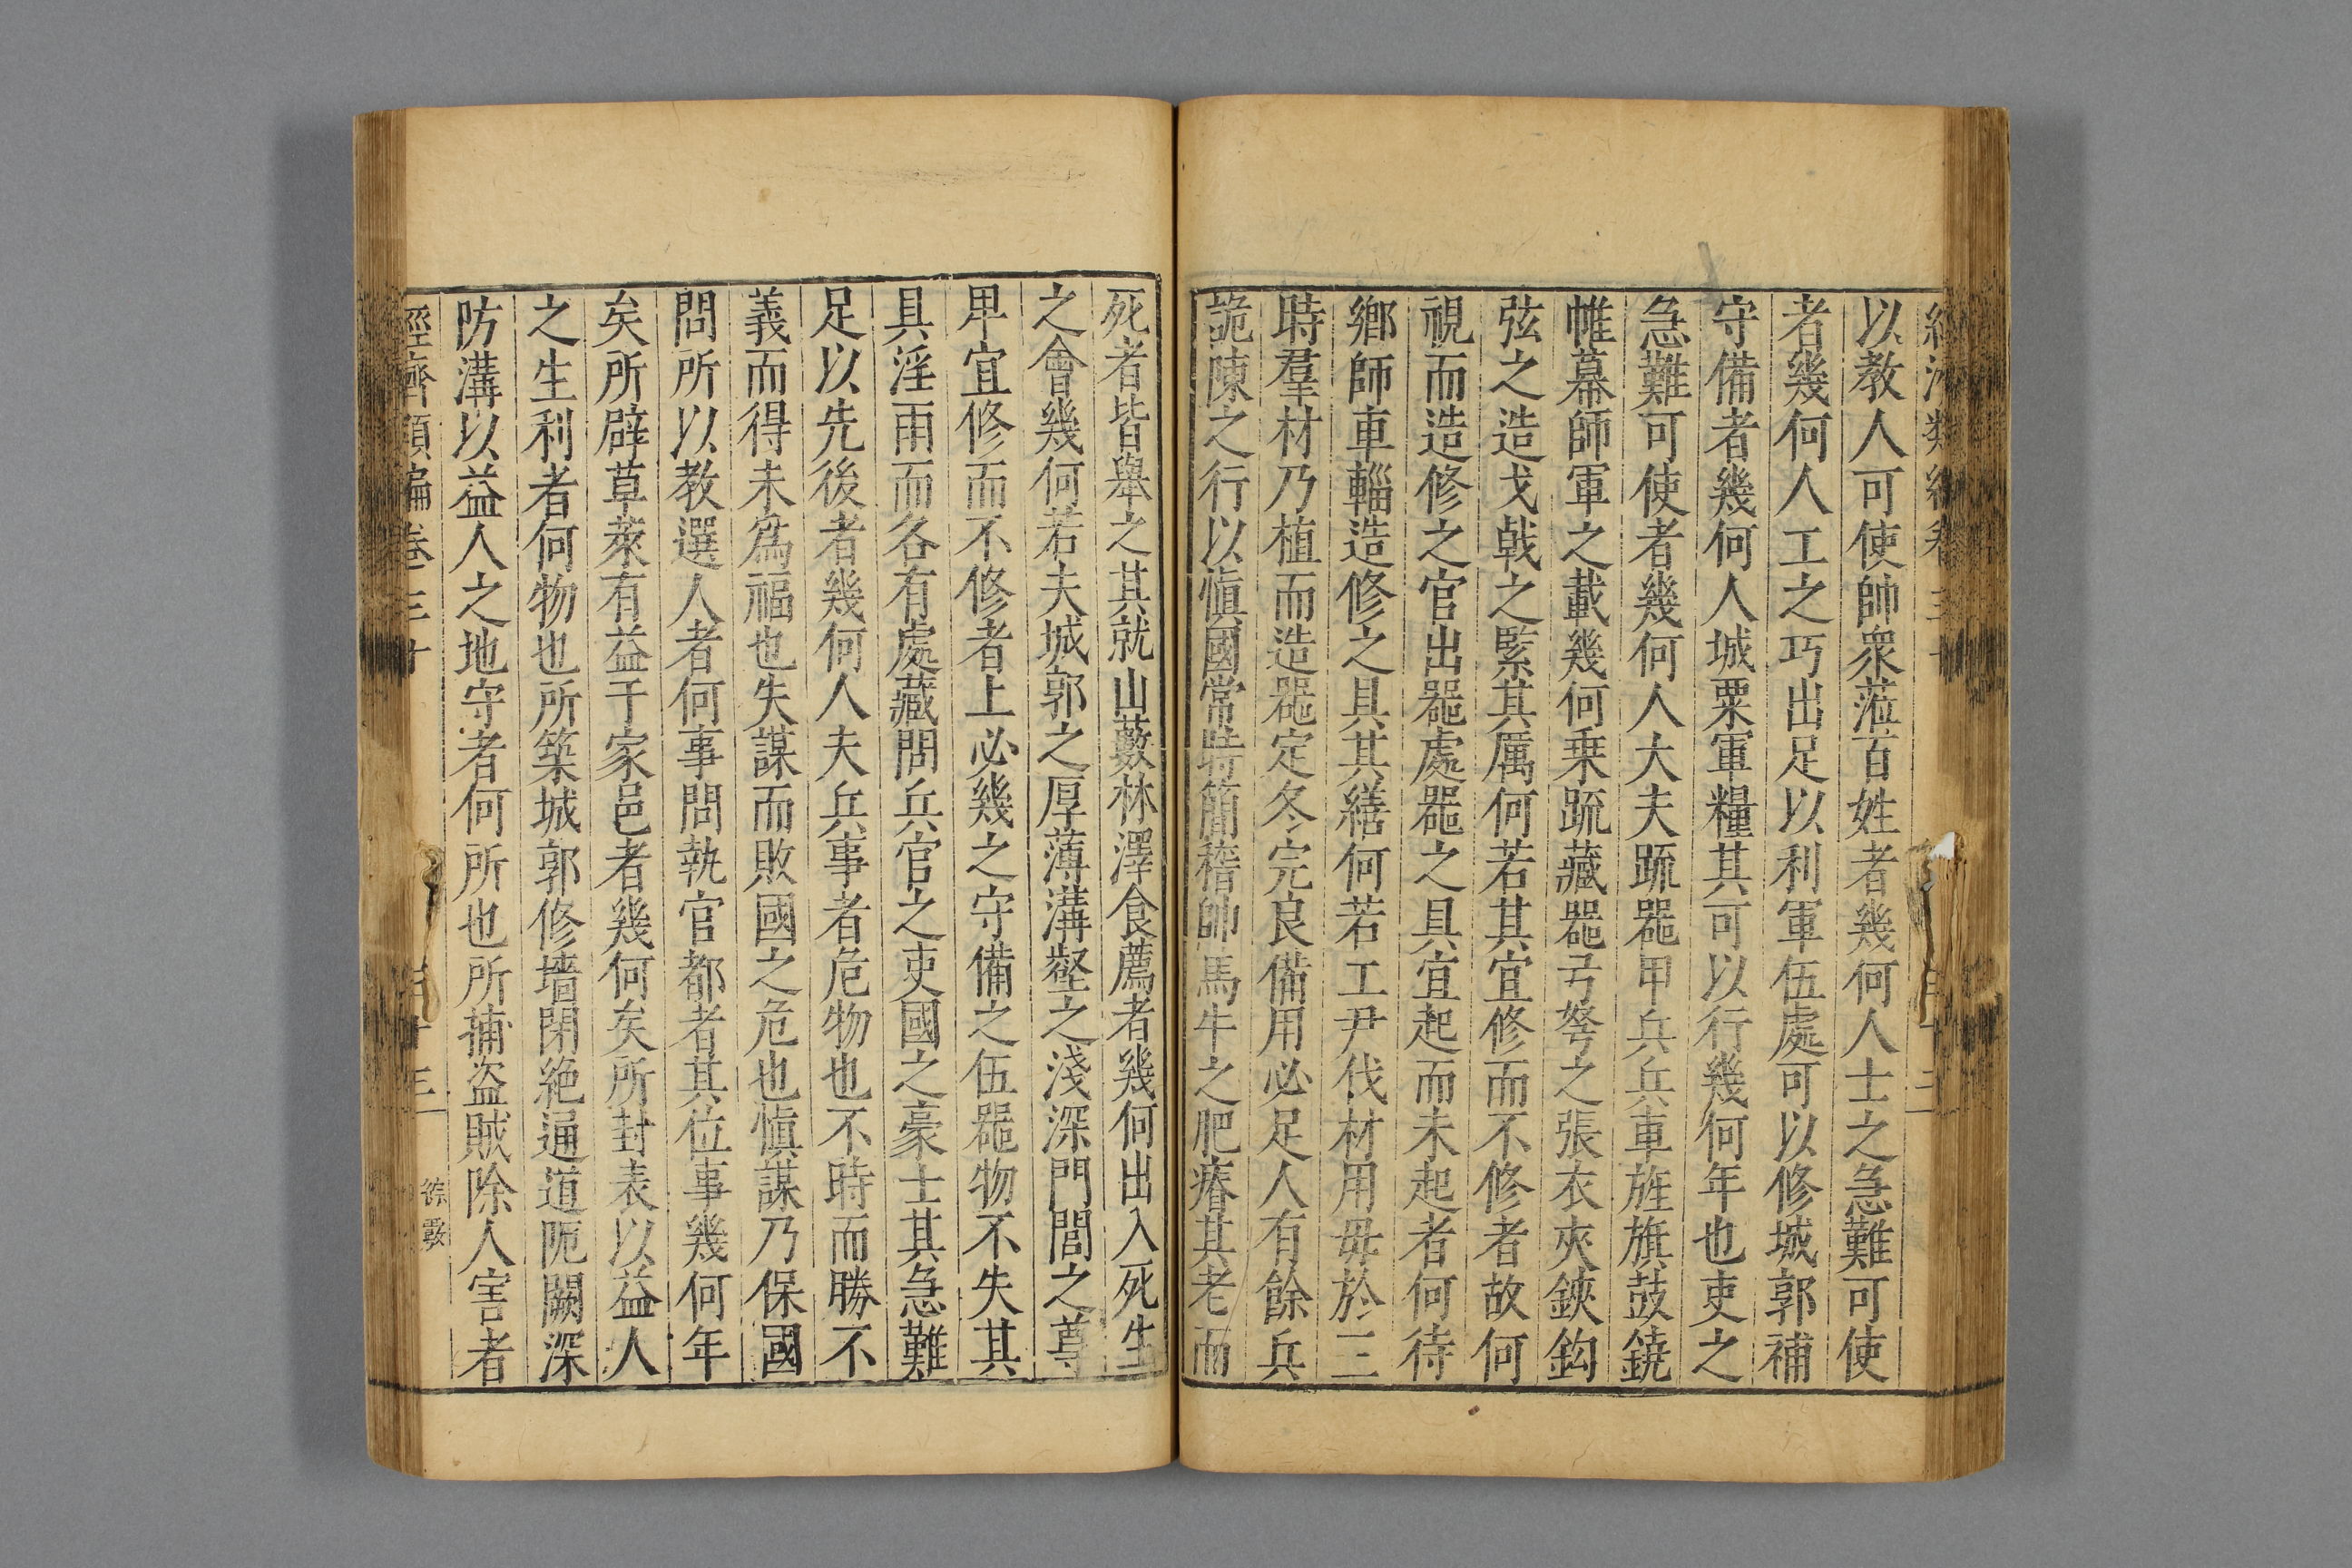 以教人可使帥衆蒞百姓者幾何人士之急難可使
者幾何人工之巧出足以利軍伍處可以修城郭補
守備者幾何人城粟軍糧其可以行幾何年也吏之
急難可使者幾何人大夫䟽噐甲兵兵車旌旗鼓鐃
帷幕師軍之載幾何乗䟽藏噐弓弩之張衣夾鋏鈎
弦之造戈戟之緊其厲何若其宜修而不修者故何
視而造修之官出噐處噐之具宜起而未起者何待
鄉師車輜造修之具其繕何若工尹伐材用毋於三
時羣材乃植而造噐定冬完良備用必足人有餘兵
詭陳之行以慎國常時簡稽帥馬牛之肥瘠其老而
死者皆舉之其就山藪林澤食薦者幾何出入死生
之會幾何若夫城郭之厚薄溝壑之淺深門閭之尊
卑宜修而不修者上必幾之守備之伍噐物不失其
具淫雨而各有處藏問兵官之吏國之豪士其急難
足以先後者幾何人夫兵事者危物也不時而勝不
義而得未爲福也失謀而敗國之危也慎謀乃保國
問所以教選人者何事問執官都者其位事幾何年
矣所辟草萊有益于家邑者幾何矣所封表以益人
之生利者何物也所築城郭修墻閉絶通道阨闕深
防溝以益人之地守者何所也所捕盗賊除人害者
經濟類編卷三十